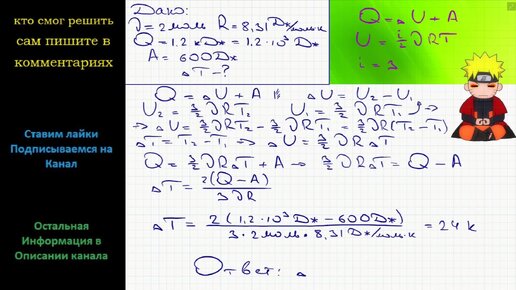 кто смог решить
сам пишите в
комментариях
Ставим лайки
Подписываемся на
Канал
Остальная
Информация в
Описании канала
Дано:
ν = 2 моль R = 8,31 Дж/моль·К
Q = 1,2 кДж = 1,2·10³ Дж
A = 600 Дж
ΔT - ?
Q = ΔU + A
U = i/2 νRT
i = 3
Q = ΔU + A ΔU = U₂ - U₁
U₂ = 3/2 νRT₂ U₁ = 3/2 νRT₁ ⇒
⇒ ΔU = 3/2 νRT₂ - 3/2 νRT₁ = 3/2 νR(T₂ - T₁)
ΔT = T₂ - T₁ ⇒ ΔU = 3/2 νRΔT
Q = 3/2 νRΔT + A ⇒ 3/2 νRΔT = Q - A
ΔT = 2(Q - A) / 3νR
ΔT = 2(1,2·10³ Дж - 600 Дж) / 3·2 моль·8,31 Дж/моль·К = 24 К
Ответ: Δ